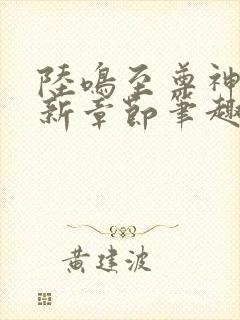 陸鳴至尊神
新章節筆趣
黃建波